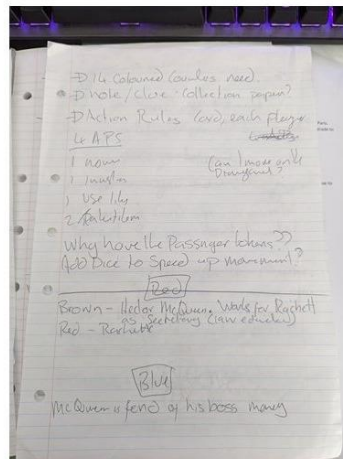 → 14 Coloured Counters need.
→ note / clue Collection paper?
→ Action Rules Card, each player
4 APS
1 move
Can I move onto
1
1 Use
2
Why have the Passenger tokens??
Add Dice to Speed up movement?
Red
Brown - Hector McQueen, Works for Rachett
as Secretary (law educated)
Red - Rachette
Blue
McQueen is fend of his boss money